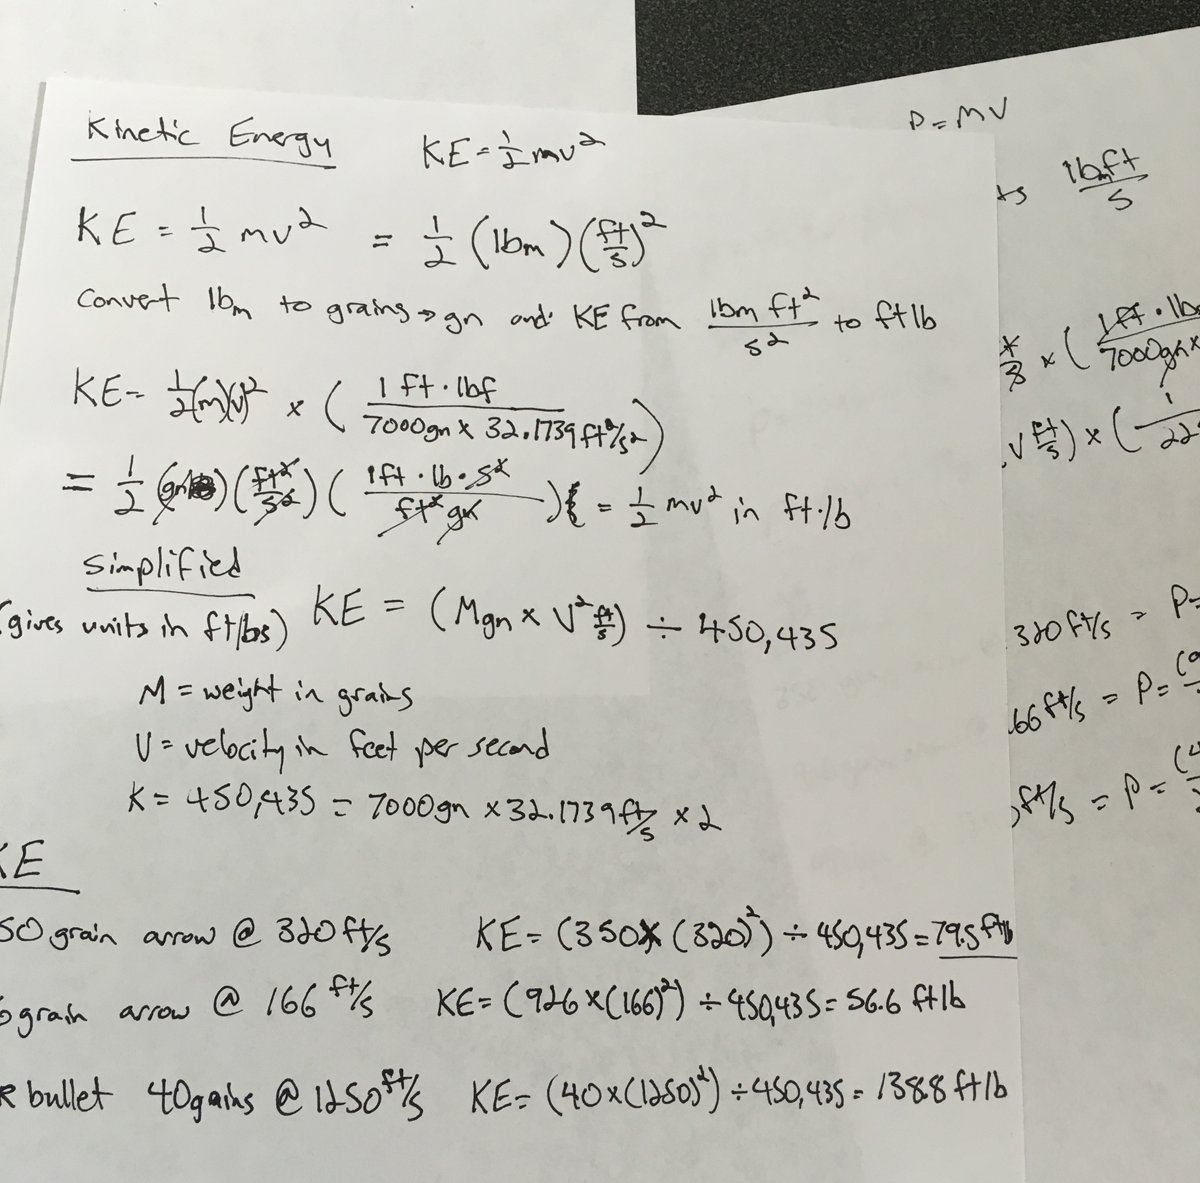 Kinetic Energy KE=½mv²
KE = ½ mv² = ½ (lbm)(ft/s)²
Convert lbm to grains → gn and KE from lbm ft²/s² to ftlb
KE= ½(m)(v)² x (1 ft·lbf / 7000gn x 32.1739 ft²/s²)
= ½ (gn)(ft²/s²)(1ft·lb·s²/ft² gn) = ½ mv² in ft·lb
Simplified
(gives units in ft/lbs) KE = (Mgn x V² ft/s) ÷ 450,435
M = weight in grains
V = velocity in feet per second
K = 450,435 = 7000gn x 32.1739 ft/s x 2
KE
50 grain arrow @ 320 ft/s KE= (350x (320)²) ÷ 450,435 = 79.5 ftlb
6 grain arrow @ 166 ft/s KE= (926 x (166)²) ÷ 450,435 = 56.6 ftlb
R bullet 40gains @ 1250 ft/s KE= (40x(1250)²) ÷ 450,435 = 138.8 ftlb
P = MV
ts lbmft/s
x (1ft·lb / 7000gn x
V ft/s) x (1/22
320 ft/s = P=
.66 ft/s = P=
ft/s = P=